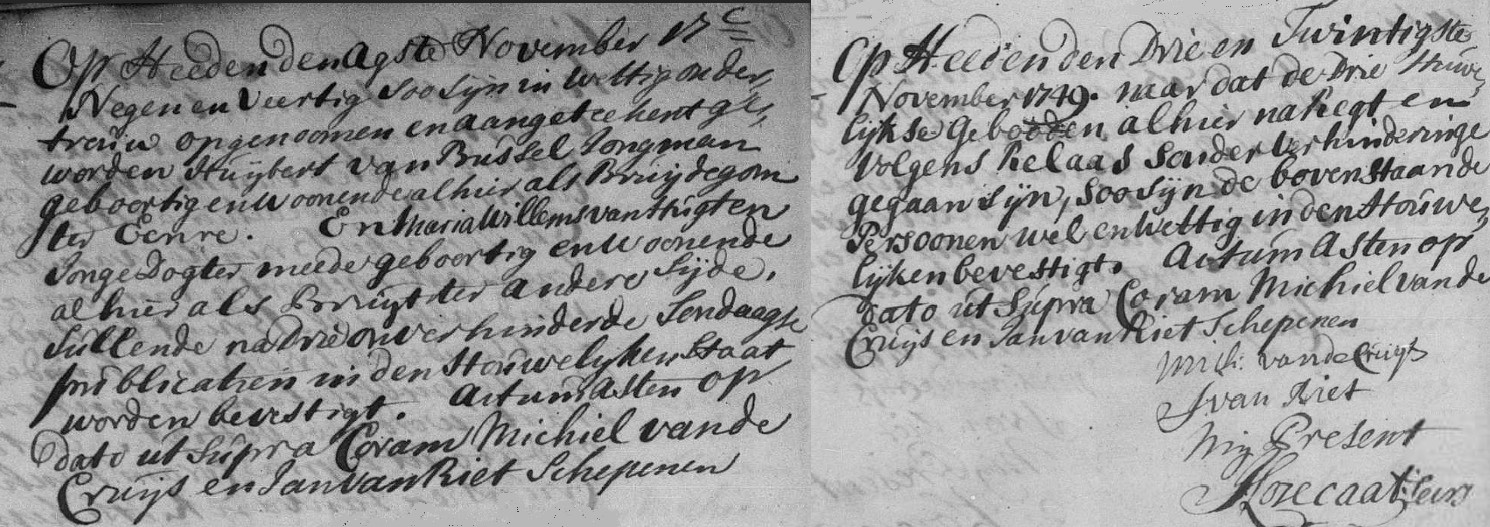 Op Heeden den agste November 17 C
Negen en Veertig soo sijn in wettig onder,
trouw opgenoomen en aangeteekent ge,
worden Huijbert van Bussel Jongman
geboortig en woonende alhier als Bruijdegom
ter Eenre. En Maria Willems van Hugten
Jonge Dogter meede geboortig en woonende
alhier als Bruijt ter andere Sijde,
Sullende na Drie onverhinderde Sondaagse
publicatien in den Houwelijken Staat
worden bevestigt. Actum Asten op
dato ut Supra Coram Michiel vande
Cruijs en Jan van Riet Schepenen
Op Heeden den Drie en Twintigste
November 1749. naar dat de Drie Huwe,
lijkse Gebooden alhier na Regt en
Volgens Relaas Sonder Verhinderinge
gegaan sijn, soo sijn de bovenstaande
Persoonen wel en wettig in den Houwe,
lijken bevestigt. Actum Asten op
dato ut Supra Coram Michiel vande
Cruijs en Jan van Riet Schepenen
Mich: vande Cruijs
J van Riet
Mij Present